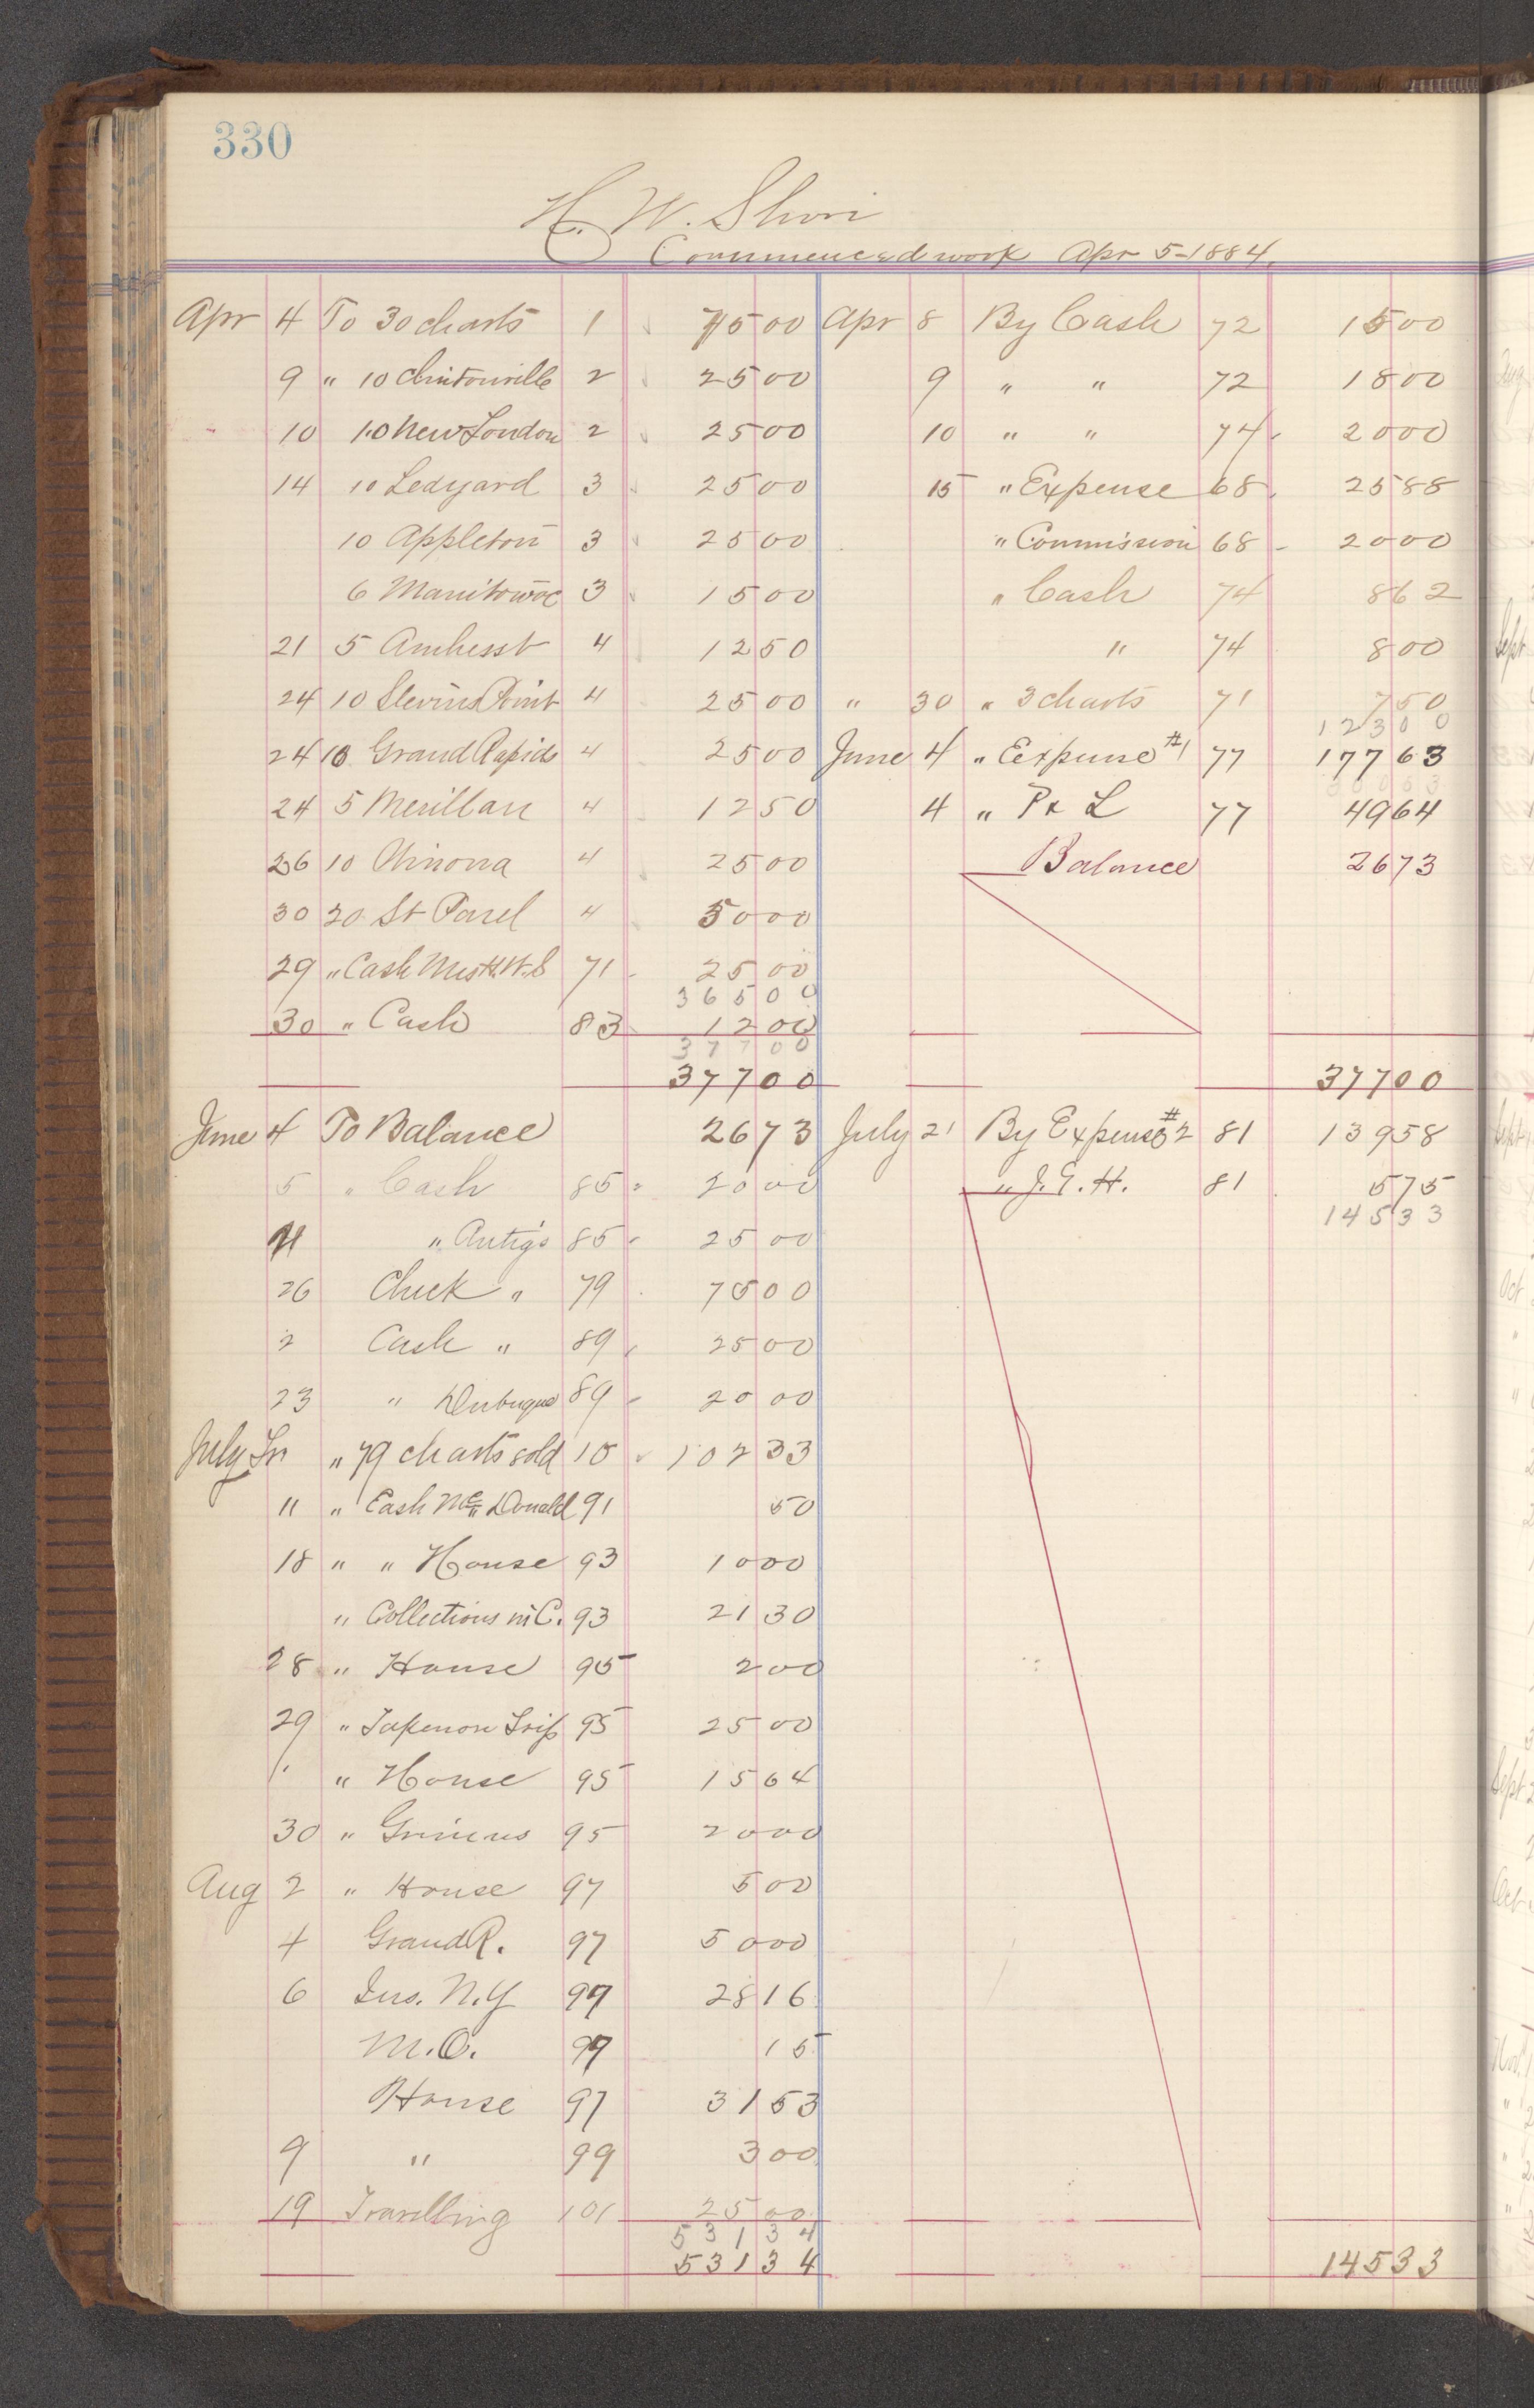 330
H. W. Shori
Commenced work Apr 5-1884.
Apr 4 To 30 charts 1 75 00 Apr 8 By Cash 72 15 00
9 " 10 Clintonville 2 25 00 9 " " 72 18 00
10 10 New London 2 25 00 10 " " 74 20 00
14 10 Ledyard 3 25 00 15 " Expense 68 25 88
10 Appleton 3 25 00 " Commission 68 20 00
6 Manitowoc 3 15 00 " Cash 74 8 62
21 5 Amhesst 4 12 50 " 74 8 00
24 10 Stevins Point 4 25 00 " 30 " 3 charts 71 7 50
123 00
24 10 Grand Rapids 4 25 00 June 4 " Expense #1 77 177 63
24 5 Merillan 4 12 50 4 " P & L 77 49 64
26 10 Winona 4 25 00 Balance 26 73
30 20 St Paul 4 50 00
29 " Cash Mrs H.W.S 71 25 00
365 00
30 " Cash 83 12 00
377 00
377 00 377 00
June 4 To Balance 26 73 July 21 By Expense #2 81 139 58
5 " Cash 85 20 00 " J. E. H. 81 5 75
145 33
" Antigo 85 25 00
26 Check " 79 75 00
2 Cash " 89 25 00
23 " Dubuque 89 20 00
July " 79 charts sold 10 102 33
11 " Cash McDonald 91 50
18 " " House 93 10 00
" Collections in C. 93 21 30
28 " House 95 2 00
29 " 95 25 00
" " House 95 15 64
30 " 95 20 00
Aug 2 " House 97 5 00
4 Grand R. 97 50 00
6 Ins. N.Y 97 28 16
M.O. 97 15
House 97 31 53
9 " 99 3 00
19 Travelling 101 25 00
531 34
531 34 145 33